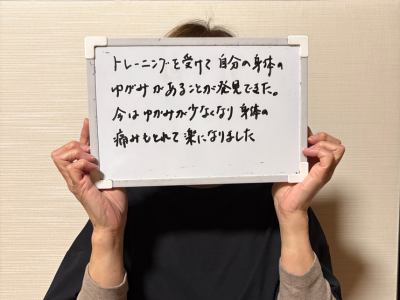 トレーニングを受けて自分の身体の
ゆがみがあることが発見できた。
今はゆがみが少なくなり身体の
痛みもとれて楽になりました